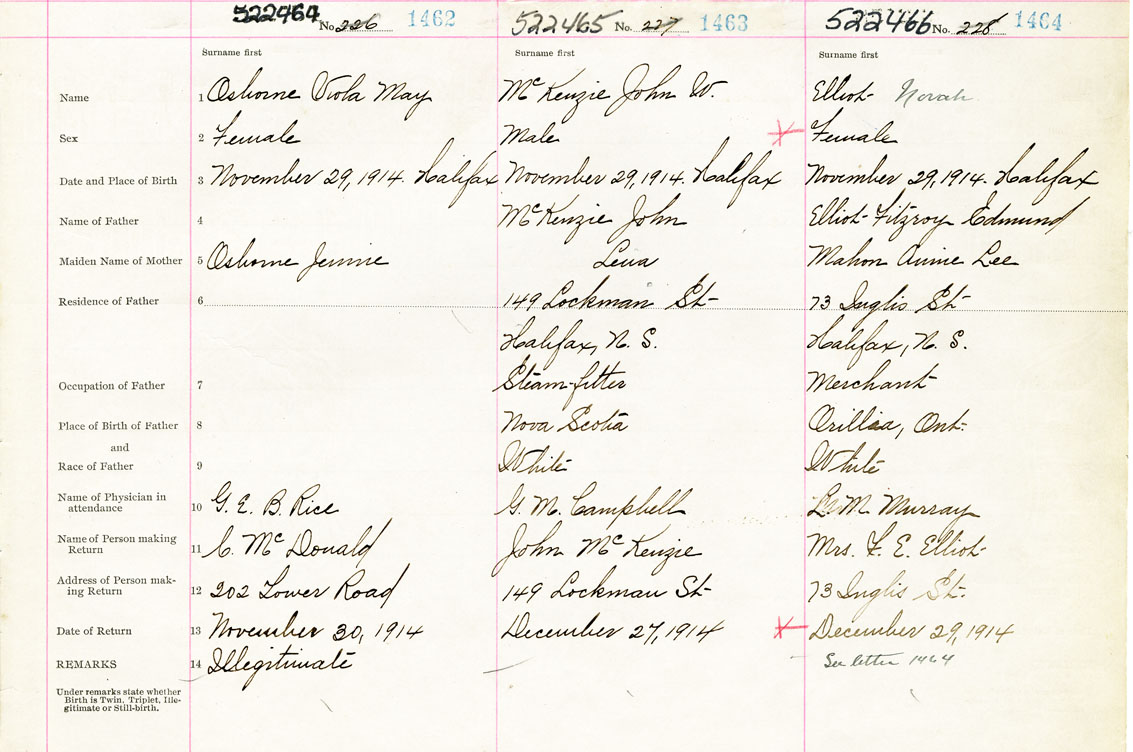 522464 No. 226 1462 522465 No. 227 1463 522466 No. 228 1464
Surname first Surname first Surname first
Name 1 Osborne Viola May McKenzie John W. Elliot Norah
Sex 2 Female Male Female
Date and Place of Birth 3 November 29, 1914. Halifax November 29, 1914. Halifax November 29, 1914. Halifax
Name of Father 4 McKenzie John Elliot Fitzroy Edmund
Maiden Name of Mother 5 Osborne Jennie Lena Mahon Annie Lee
Residence of Father 6 149 Lockman St 73 Inglis St
Halifax, N. S. Halifax, N. S.
Occupation of Father 7 Steam-fitter Merchant
Place of Birth of Father 8 Nova Scotia Orillia, Ont.
and
Race of Father 9 White White
Name of Physician in
attendance 10 G. E. B. Rice G. M. Campbell M. Murray
Name of Person making
Return 11 C. McDonald John McKenzie Mrs. F. E. Elliot
Address of Person mak-
ing Return 12 202 Lower Road 149 Lockman St 73 Inglis St.
Date of Return 13 November 30, 1914 December 27, 1914 December 29, 1914
REMARKS 14 Illegitimate See letter 1464
Under remarks state whether
Birth is Twin, Triplet, Ille-
gitimate or Still-birth.